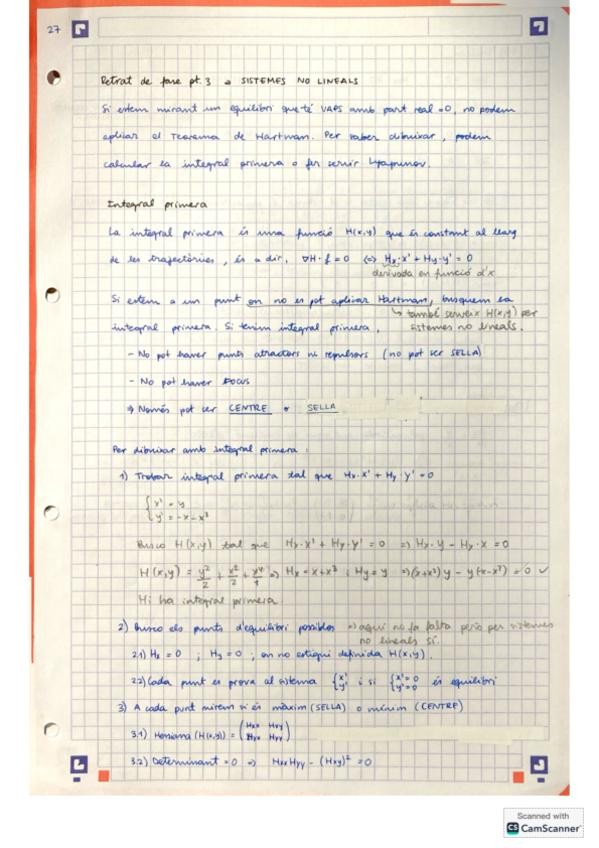 27
Retrat de fase pt. 3 → SISTEMES NO LINEALS
Si estem mirant un equilibri que té VAPS amb part real =0, no podem
aplicar el Teorema de Hartman. Per saber dibuixar, podem
calcular la integral primera o fer servir Lyapunov.
Integral primera
La integral primera és una funció H(x,y) que és constant al llarg
de les trajectòries, és a dir, ∇H·f = 0 (⇔) Hx·x' + Hy·y' = 0
derivada en funció d'x
Si estem a un punt on no es pot aplicar Hartman, busquem la
↳ també serveix H(x,y) per
integral primera. Si tenim integral primera,
sistemes no lineals.
- No pot haver punts atractors ni repulsors (no pot ser SELLA)
- No pot haver FOCUS
⇒ Només pot ser CENTRE o SELLA
Per dibuixar amb integral primera:
1) Trobar integral primera tal que Hx·x' + Hy·y' = 0
{x' = y
{y' = -x - x³
Busco H(x,y) tal que Hx·x' + Hy·y' = 0 ⇒ Hx·y - Hy·x = 0
H(x,y) = y²/2 + x²/2 + x⁴/4 ⇒ Hx = x+x³ i Hy = y ⇒ (x+x³)y - y(x-x³) = 0 ✓
Hi ha integral primera
2) Busco els punts d'equilibri possibles ⇒ aquí no fa falta però per sistemes
no lineals sí.
2.1) Hx = 0 ; Hy = 0 ; on no estigui definida H(x,y).
2.2) Cada punt es prova al sistema {x' y' i si {x'=0 y'=0 és equilibri
3) A cada punt mirem si és màxim (SELLA) o mínim (CENTRE)
3.1) Hessiana (H(x,y)) = (Hxx Hxy
Hyx Hyy)
3.2) Determinant = 0 ⇒ HxxHyy - (Hxy)² = 0
Scanned with
CS CamScanner